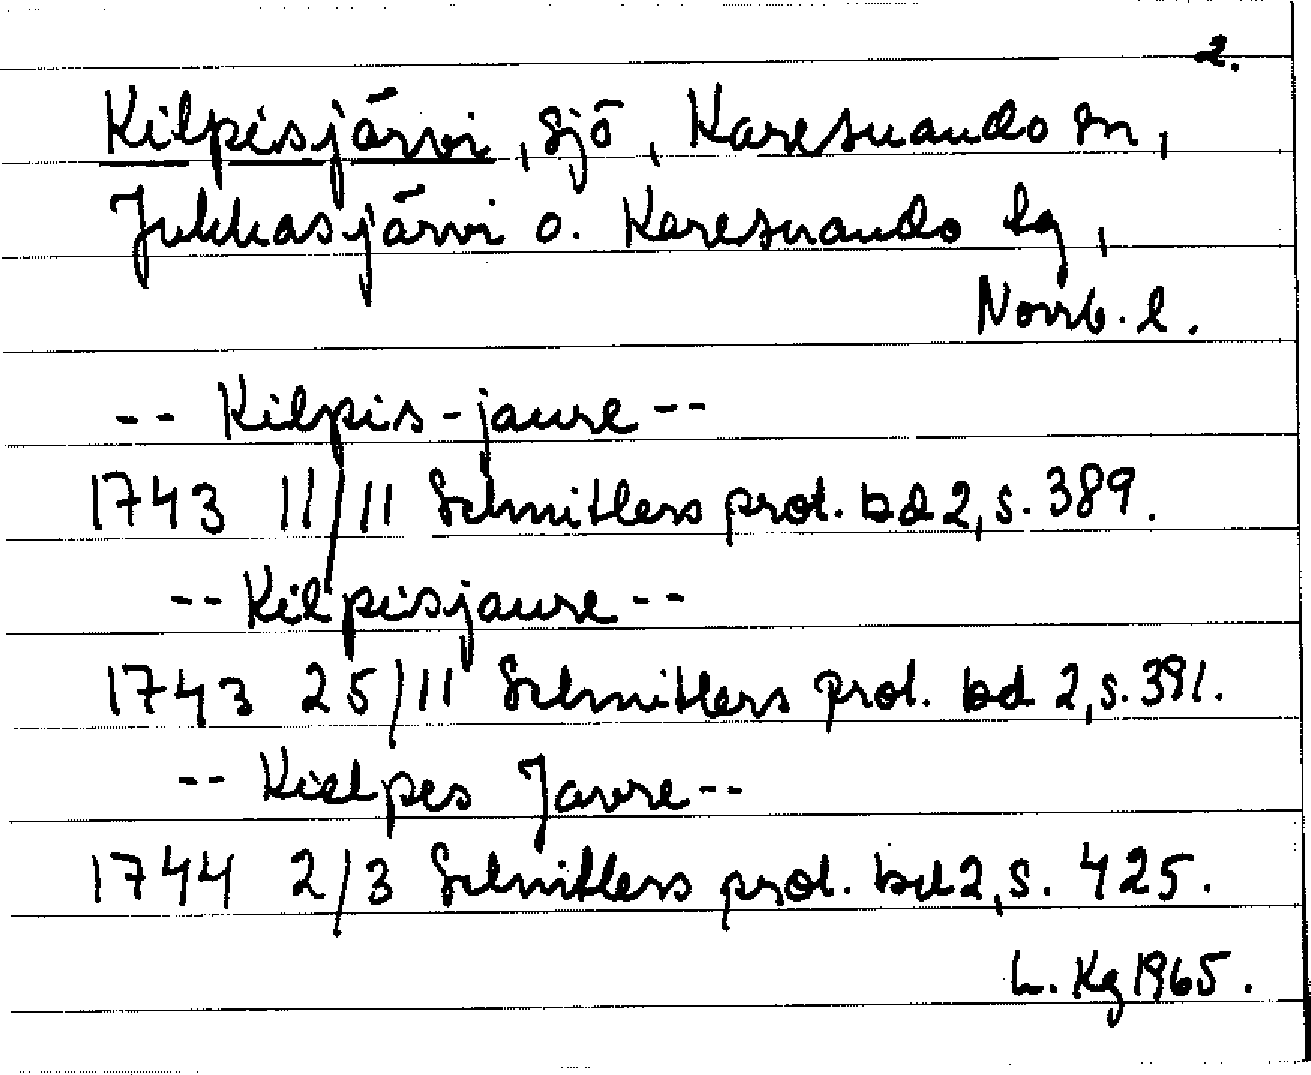 2.
Kilpisjärvi, sjö, Karesuando sn,
Jukkasjärvi o. Karesuando lg,
Norrb. l.
-- Kilpis-jaure --
1743 11/11 Schnitlers prot. bd 2, s. 389.
-- Kilpisjaure --
1743 25/11 Schnitlers prot. bd 2, s. 391.
-- Kielpes Javre --
1744 2/3 Schnitlers prot. bd 2, s. 425.
L. Kg 1965.